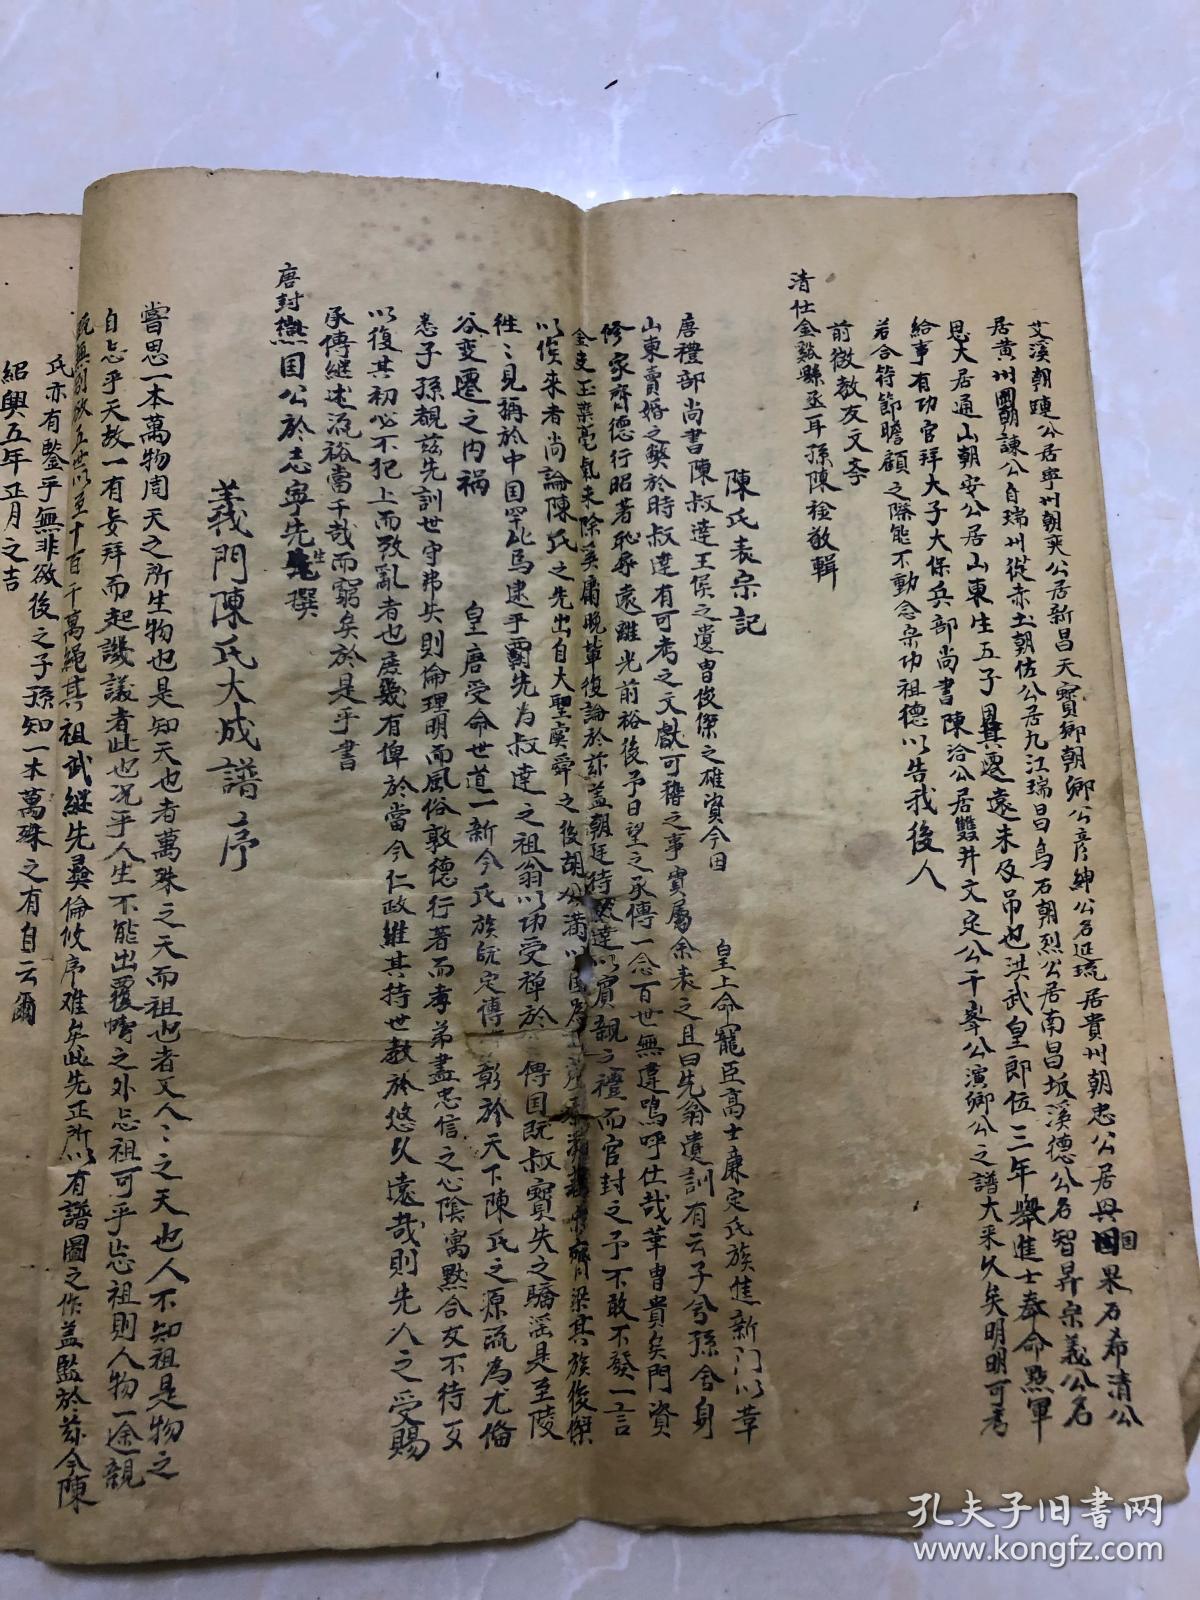 艾溪朝陳公居寧州朝英公居新昌天寶鄉朝鄉公彥紳公名延琉居貴州朝忠公居興國果石希清公
居黃州朝諫公自瑞州從赤土朝佐公居九江瑞昌烏石朝烈公居南昌坂溪德公名智昇宗義公名
思大居通山朝安公居山東生五子因其遷遠未及吊也洪武皇即位三年舉進士奉命點軍
給事有功官拜大子大保兵部尚書陳洽公居雙井文定公千峯公演鄉公之譜大釆久矣明明可考
若合符節瞻顧之際能不動念宗功祖德以告我後人
前徵教友文李
清仕金谿縣丞耳孫陳栓敬輯
陳氏表宗記
唐禮部尚書陳叔達王侯之遺曺俊傑之雄資今因 皇上命寵臣高士廉定氏族進新門以革
山東賣婚之獘於時叔達有可考之文獻可稽之事實屬余表之且曰先翁遺訓有云子兮孫舍身
修家齊德行昭著恥辱遠離光前裕後予日望之承傳一念百世無違嗚呼仕哉華曺貴矣門資
金支玉葉亳氣未除奚屑晚輩復論於茲蓋朝廷待叔達以賓親之禮而官封之予不敢不發一言
以俟來者尚論陳氏之先出自大聖虞舜之後胡公滿以國為氏 齊梁其族俊傑
徃〻見稱於中国罕此焉逮乎霸先為叔達之祖翁以功受禅於 傳囯既叔寶失之驕滛是至陵
谷变遷之内禍 皇唐受命世道一新今氏族既定傳 彰於天下陳氏之源流為尤偹
悉子孫覩茲先訓世守弗失則倫理明而風俗敦德行著而孝弟盡忠信之心陰寓黙合攵不待支
以復其初必不犯上而致亂者也庻幾有俾於當今仁政維其持世教於悠久遠哉則先人之受賜
承傳継述流裕當千哉而窮矣於是乎書
唐封燕国公於志寧先生撰
義門陳氏大成譜序
嘗思一本萬物周天之所生物也是知天也者萬殊之天而祖也者又人〻之天也人不知祖是物之
自忘乎天故一有妄拜而起譏議者此也况乎人生不能出覆幬之外忘祖可乎忘祖則人物一途親
既無別故五世以至十百千萬繩其祖武継先彞倫攸序难矣此先正所以有譜圖之作蓋監於茲今陳
氏亦有鑒乎無非欲後之子孫知一本萬殊之有自云爾
紹興五年正月之吉
孔夫子旧书网
www.kongfz.com